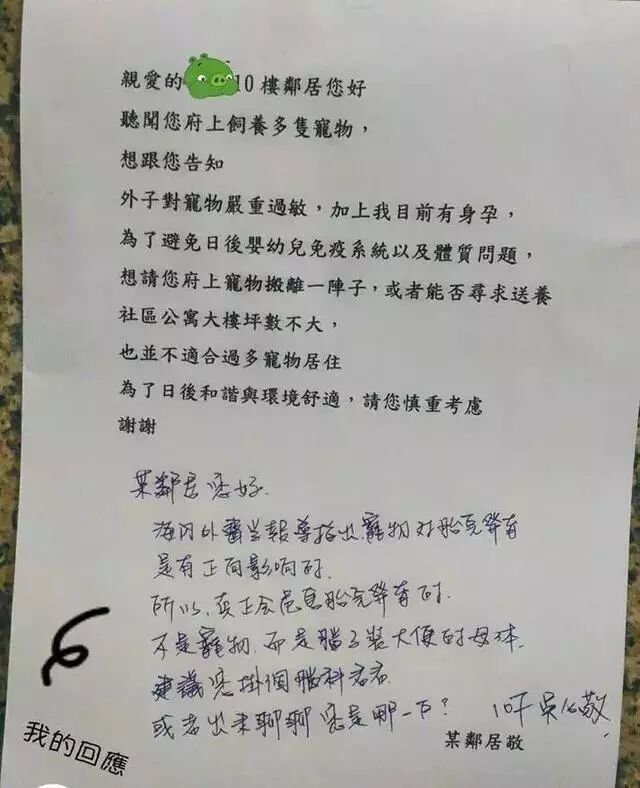 親愛的 10樓鄰居您好
聽聞您府上飼養多隻寵物，
想跟您告知
外子對寵物嚴重過敏，加上我目前有身孕，
為了避免日後嬰幼兒免疫系統以及體質問題，
想請您府上寵物搬離一陣子，或者能否尋求送養
社區公寓大樓坪數不大，
也並不適合過多寵物居住
為了日後和諧與環境舒適，請您慎重考慮
謝謝
某鄰居您好.
海內外醫學報導指出寵物對胎兒發育
是有正面影响的.
所以,真正会危害胎兒發育的.
不是寵物.而是腦子裝大便的母体.
建議您掛個腦科看看
或者出來聊聊您是哪一户? 10F 吳公敬
某鄰居敬
我的回應